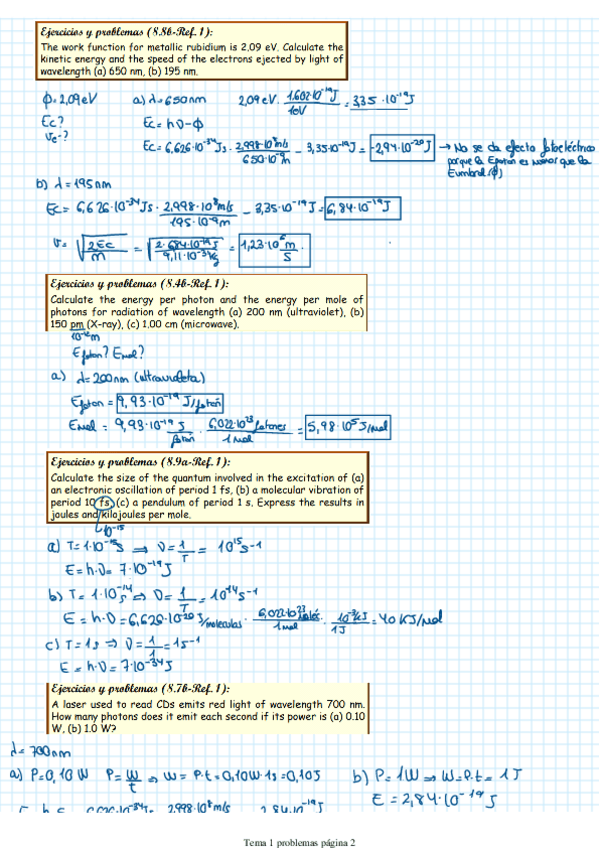 Ejercicios y problemas (8.8b-Ref. 1):
The work function for metallic rubidium is 2,09 eV. Calculate the
kinetic energy and the speed of the electrons ejected by light of
wavelength (a) 650 nm, (b) 195 nm.
ϕ = 2,09 eV a) λ = 650 nm 2,09 eV · 1.602·10⁻¹⁹J / 1eV = 3,35 · 10⁻¹⁹J
Ec? Ec = hν - ϕ
Ve-?
Ec = 6,626·10⁻³⁴Js · 2,998·10⁸m/s / 650·10⁻⁹m - 3,35·10⁻¹⁹J = -2,94·10⁻²⁰J → No se da efecto fotoeléctrico
porque la Efotón es menor que la
Eumbral (ϕ)
b) λ = 195 nm
Ec = 6,626·10⁻³⁴Js · 2,998·10⁸m/s / 195·10⁻⁹m - 3,35·10⁻¹⁹J = 6,84·10⁻¹⁹J
v = √(2Ec / m) = √(2·6,84·10⁻¹⁹J / 9,11·10⁻³¹kg) = 1,23·10⁶ m/s
Ejercicios y problemas (8.4b-Ref. 1):
Calculate the energy per photon and the energy per mole of
photons for radiation of wavelength (a) 200 nm (ultraviolet), (b)
150 pm (X-ray), (c) 1,00 cm (microwave).
10⁻¹²m
Efoton? Emol?
a) λ = 200 nm (ultravioleta)
Efoton = 9,93·10⁻¹⁹ J/fotón
Emol = 9,93·10⁻¹⁹ J/fotón · 6,022·10²³ fotones / 1 mol = 5,98·10⁵ J/mol
Ejercicios y problemas (8.9a-Ref. 1):
Calculate the size of the quantum involved in the excitation of (a)
an electronic oscillation of period 1 fs, (b) a molecular vibration of
period 10 fs, (c) a pendulum of period 1 s. Express the results in
joules and kilojoules per mole.
↳ 10⁻¹⁵
a) T = 1·10⁻¹⁵s ⇒ ν = 1/T = 10¹⁵s⁻¹
E = h·ν = 7·10⁻¹⁹J
b) T = 1·10⁻¹⁴s ⇒ ν = 1/T = 10¹⁴s⁻¹
E = h·ν = 6,626·10⁻²⁰ J/moleculas · 6,022·10²³ / 1 mol · 10⁻³kJ / 1J = 40 KJ/mol
c) T = 1s ⇒ ν = 1/1 = 1s⁻¹
E = h·ν = 7·10⁻³⁴J
Ejercicios y problemas (8.7b-Ref. 1):
A laser used to read CDs emits red light of wavelength 700 nm.
How many photons does it emit each second if its power is (a) 0.10
W, (b) 1.0 W?
λ = 700 nm
a) P = 0,10 W P = W/t ⇒ W = P·t = 0,10W·1s = 0,10J b) P = 1W ⇒ W = P·t = 1J
E = 2,84·10⁻¹⁹ J
2,998·10⁸m/s 2,84·10⁻¹⁹J
Tema 1 problemas página 2